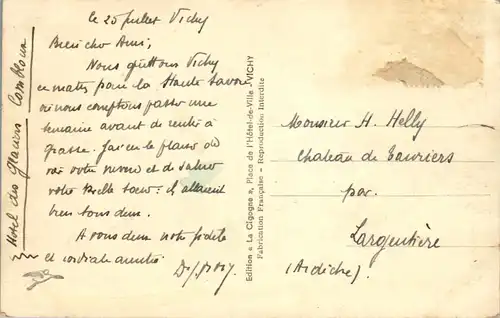 le 25 juillet Vichy
Bien cher Ami,
Nous quittons Vichy
ce matin pour la Haute Savoie
où nous comptons passer une
semaine avant de rentrer à
Grasse. J'ai eu le plaisir de
voir votre neveu et de saluer
votre belle soeur : ils allaient
bien tous deux.
A vous deux notre fidèle
et cordiale amitié
Hotel des Glaciers Combloux
Edition « La Cigogne », Place de l'Hôtel-de-Ville - VICHY
Fabrication Française - Reproduction Interdite
Monsieur H. Helly
Chateau de Tauriers
par
Largentière
(Ardèche)